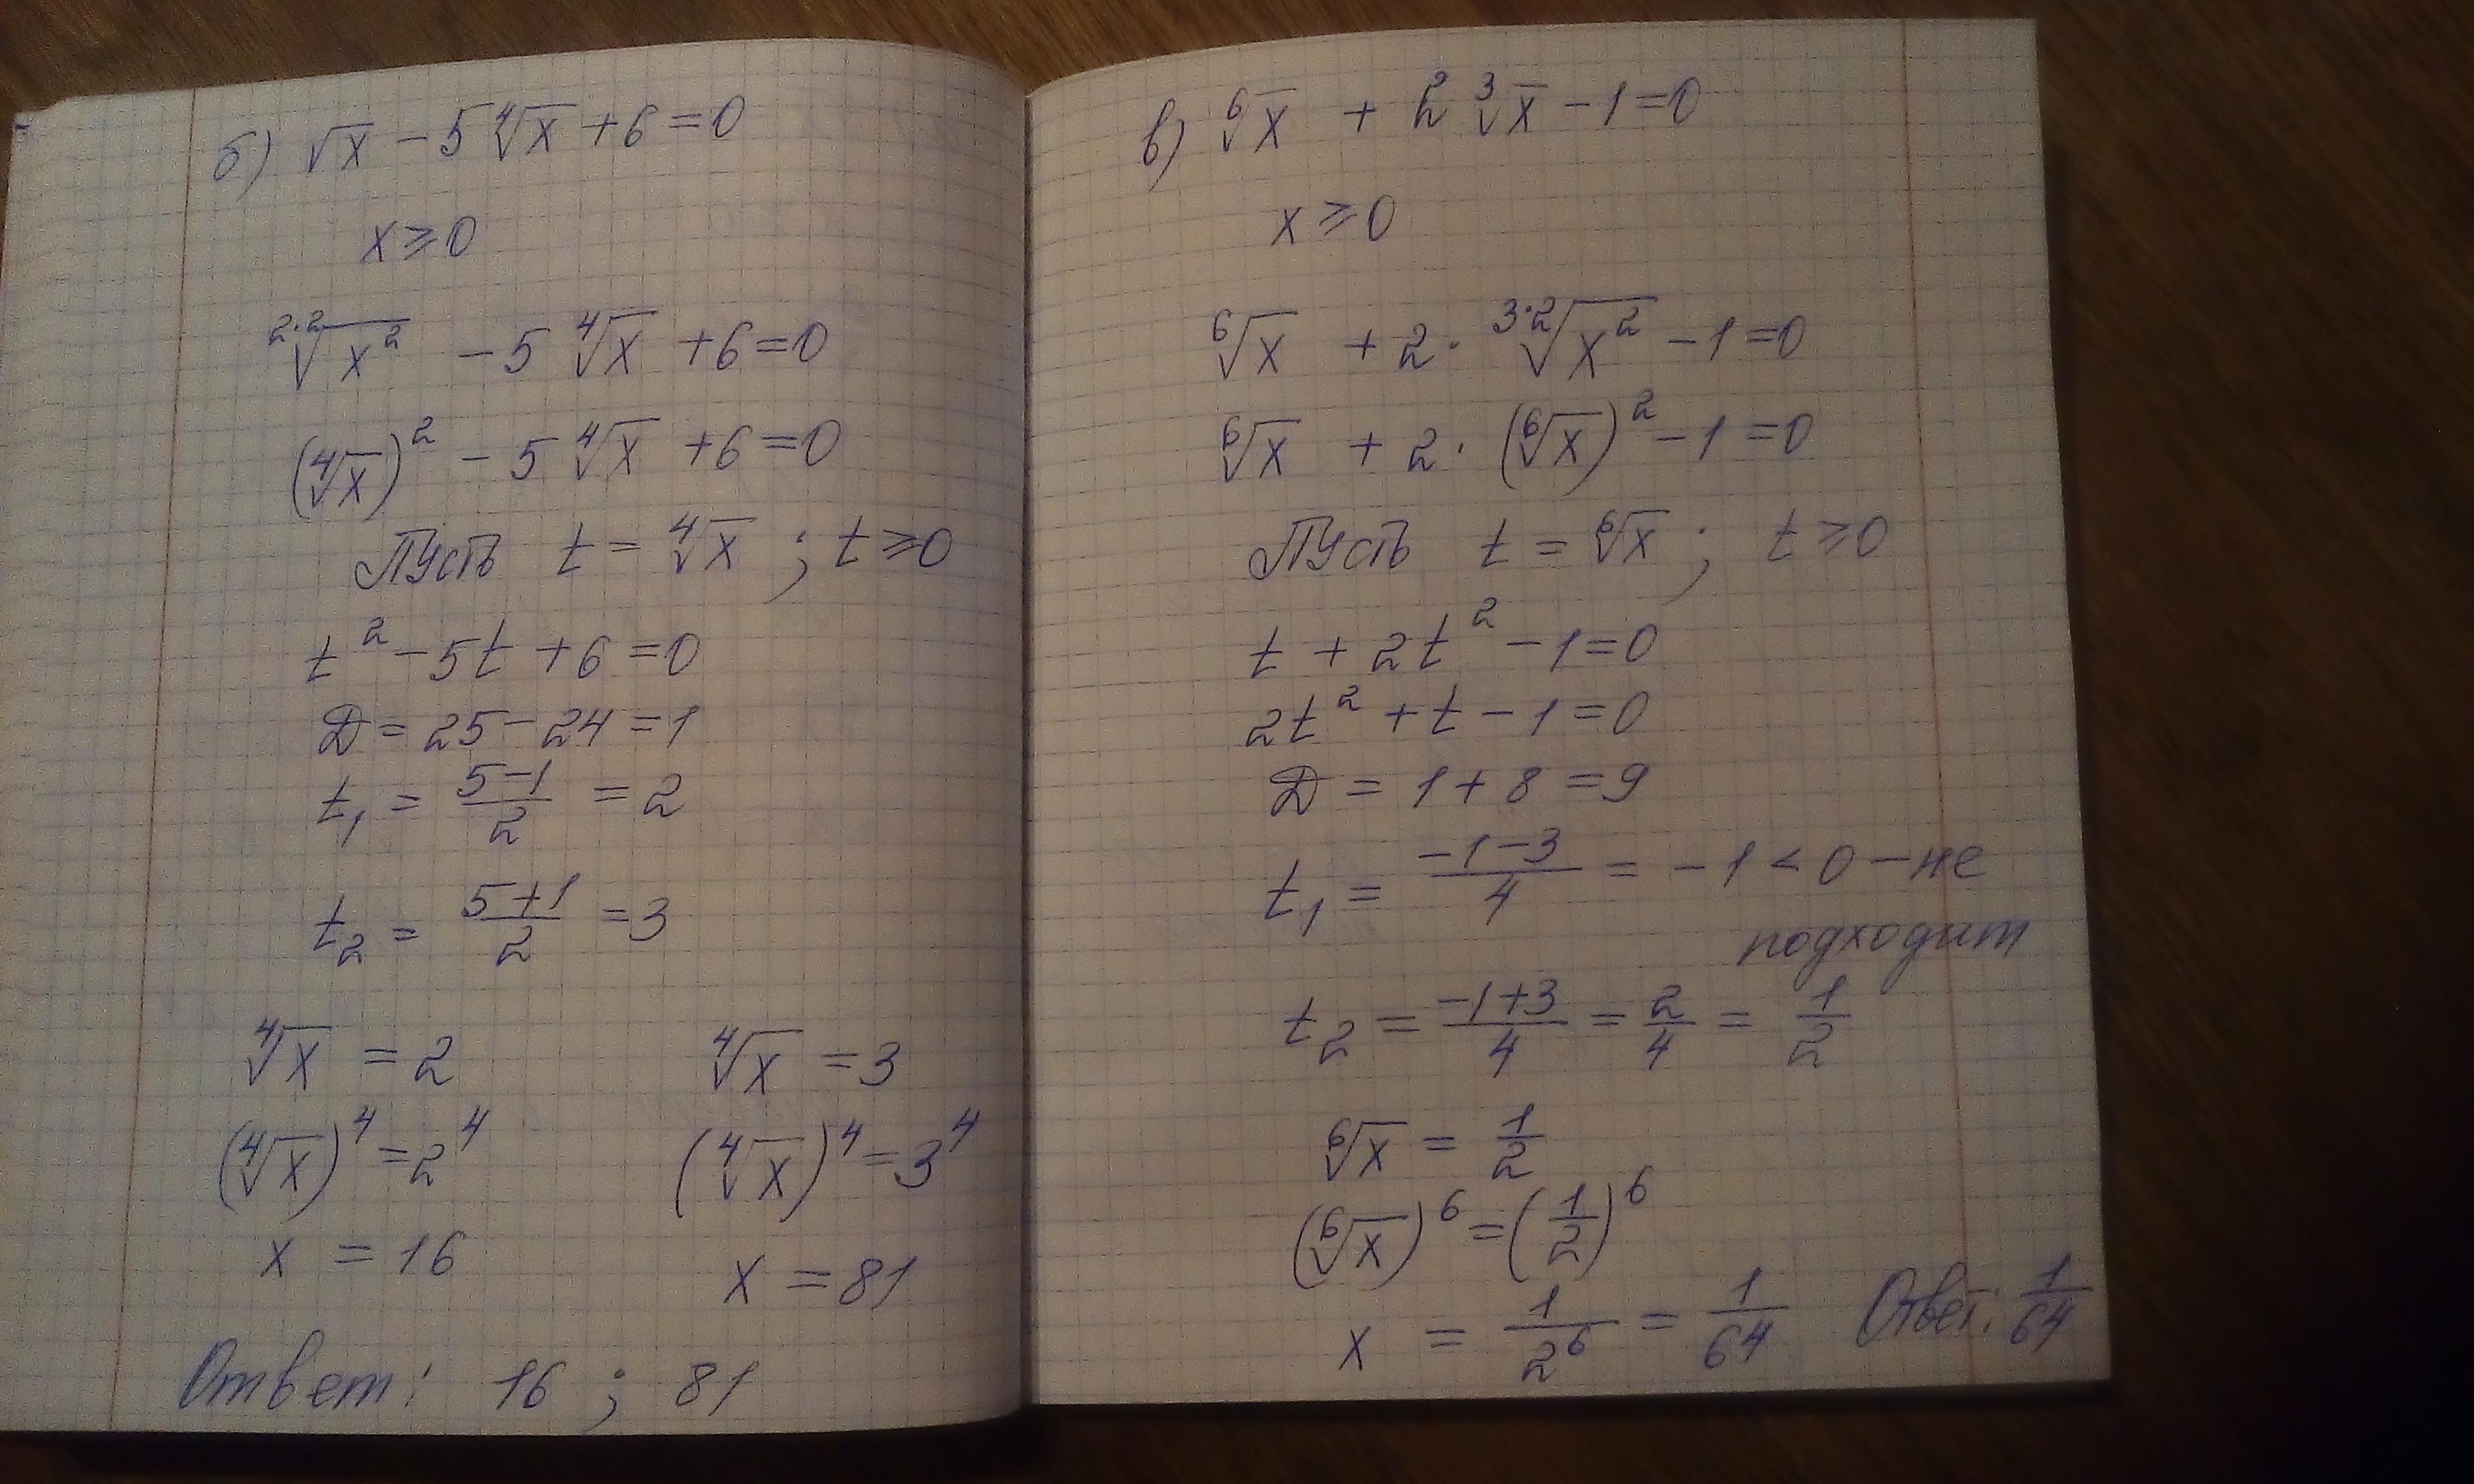 б) √x − 5 ⁴√x + 6 = 0
x ≥ 0
²·²√x² − 5 ⁴√x + 6 = 0
(⁴√x)² − 5 ⁴√x + 6 = 0
Пусть t = ⁴√x ; t ≥ 0
t² − 5t + 6 = 0
D = 25 − 24 = 1
t₁ = (5−1)/2 = 2
t₂ = (5+1)/2 = 3
⁴√x = 2 ⁴√x = 3
(⁴√x)⁴ = 2⁴ (⁴√x)⁴ = 3⁴
x = 16 x = 81
Ответ: 16 ; 81
в) ⁶√x + 2 ³√x − 1 = 0
x ≥ 0
⁶√x + 2 · ³·²√x² − 1 = 0
⁶√x + 2 · (⁶√x)² − 1 = 0
Пусть t = ⁶√x ; t ≥ 0
t + 2t² − 1 = 0
2t² + t − 1 = 0
D = 1 + 8 = 9
t₁ = (−1−3)/4 = −1 < 0 − не
подходит
t₂ = (−1+3)/4 = 2/4 = 1/2
⁶√x = 1/2
(⁶√x)⁶ = (1/2)⁶
x = 1/2⁶ = 1/64 Ответ: 1/64